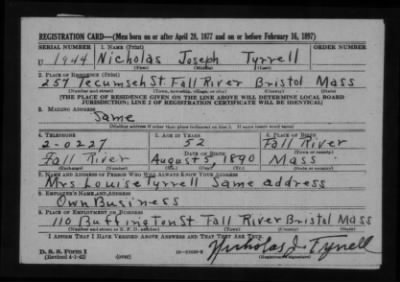 REGISTRATION CARD—(Men born on or after April 28, 1877 and on or before February 16, 1897)
SERIAL NUMBER 1. NAME (Print) ORDER NUMBER
U 1944 Nicholas Joseph Tyrrell
(First) (Middle) (Last)
2. PLACE OF RESIDENCE (Print)
257 Tecumseh St Fall River Bristol Mass
(Number and street) (Town, township, village, or city) (County) (State)
[THE PLACE OF RESIDENCE GIVEN ON THE LINE ABOVE WILL DETERMINE LOCAL BOARD
JURISDICTION; LINE 2 OF REGISTRATION CERTIFICATE WILL BE IDENTICAL]
3. MAILING ADDRESS
Same
(Mailing address if other than place indicated on line 2. If same insert word same)
4. TELEPHONE 5. AGE IN YEARS 6. PLACE OF BIRTH
2-0227 52 Fall River
DATE OF BIRTH (Town or county)
Fall River August 5, 1890 Mass
(Exchange) (Number) (Mo.) (Day) (Yr.) (State or country)
7. NAME AND ADDRESS OF PERSON WHO WILL ALWAYS KNOW YOUR ADDRESS
Mrs Louise Tyrrell Same address
8. EMPLOYER'S NAME AND ADDRESS
Own Business
9. PLACE OF EMPLOYMENT OR BUSINESS
110 Buffington St Fall River Bristol Mass
(Number and street or R. F. D. number) (Town) (County) (State)
I AFFIRM THAT I HAVE VERIFIED ABOVE ANSWERS AND THAT THEY ARE TRUE.
D. S. S. Form 1
(Revised 4-1-42) (over) Nicholas J. Tyrrell
(Registrant's signature)